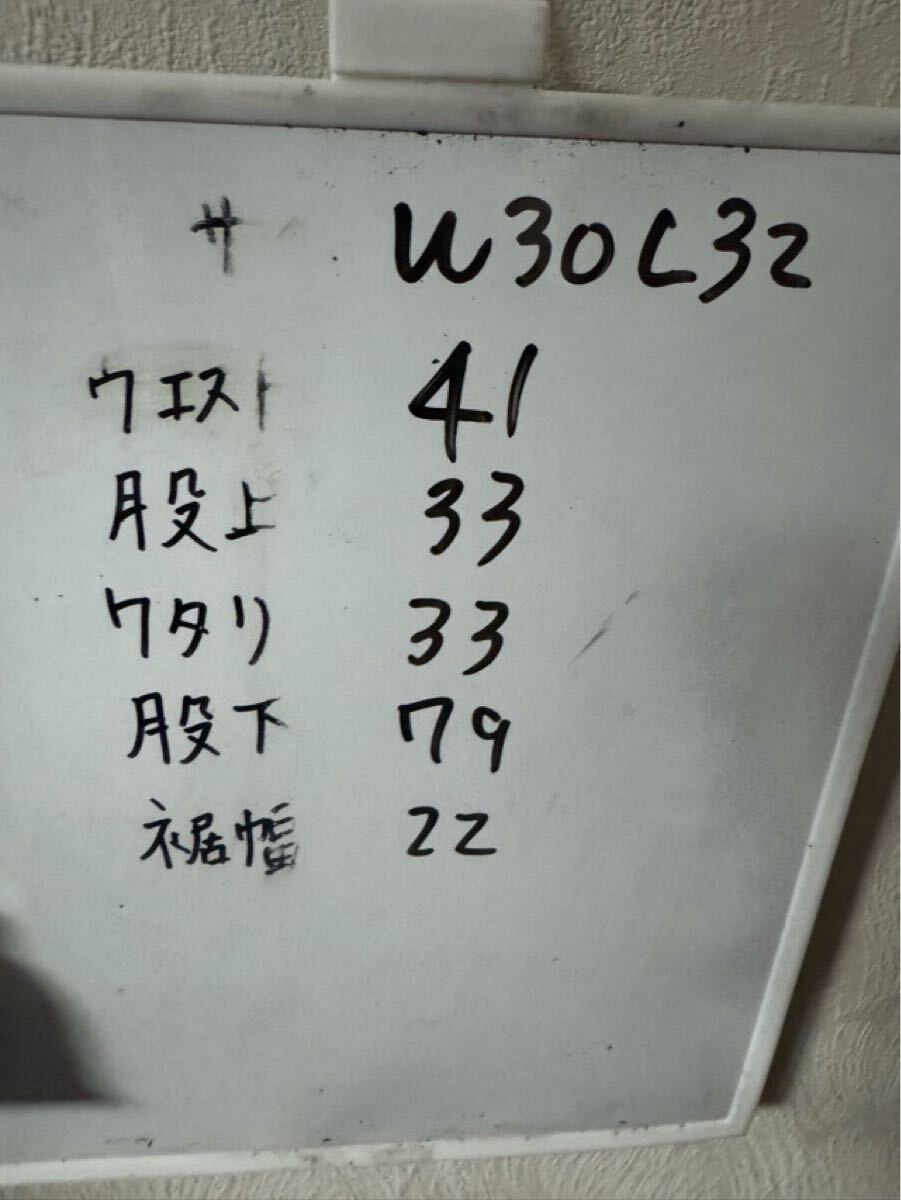 サ W30L32
ウエスト 41
股上 33
ワタリ 33
股下 79
裾幅 22